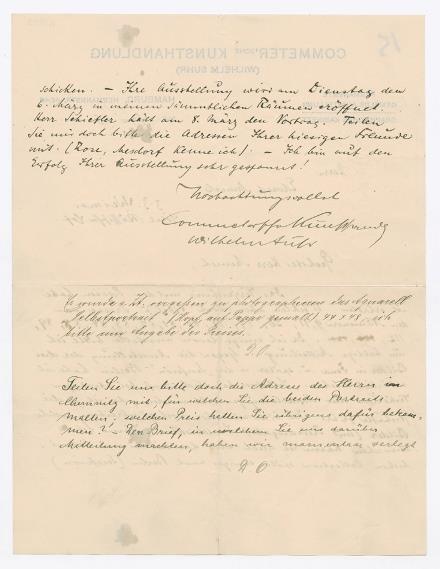 schicken. – Ihre Ausstellung wird am Dienstag den
6. März in meinen sämmtlichen Räumen eröffnet.
Herr Schiefler hält am 8. März den Vortrag. Teilen
Sie mir doch bitte die Adressen Ihrer hiesigen Freunde
mit. (Rose, kenne ich). – Ich bin auf den
Erfolg Ihrer Ausstellung sehr gespannt!
Hochachtungsvollst
Commetersche Kunsthandlg
Wilhelm Suhr
Es wurde vergessen zu photographieren das Aquarell
Selbstportrait (Kopf auf Pappe gemalt) 74 x 48. ich
bitte um Angabe des Preises.
D. O
Teilen Sie uns bitte doch die Adresse des Herrn in
Chemnitz mit, für welchen Sie die beiden Portraits
malten. welchen Preis hatten Sie übrigens dafür bekom-
men? – Den Brief, in welchem Sie uns darüber
Mitteilung machten, haben wir momentan verlegt
D O